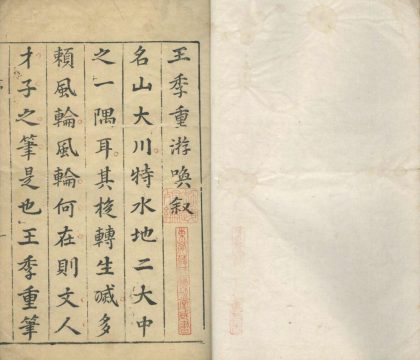 王季重游喚叙
名山大川特水地二大中
之一隅耳其梭轉生滅多
頼風輪風輪何在則文人
才子之筆是也王季重筆